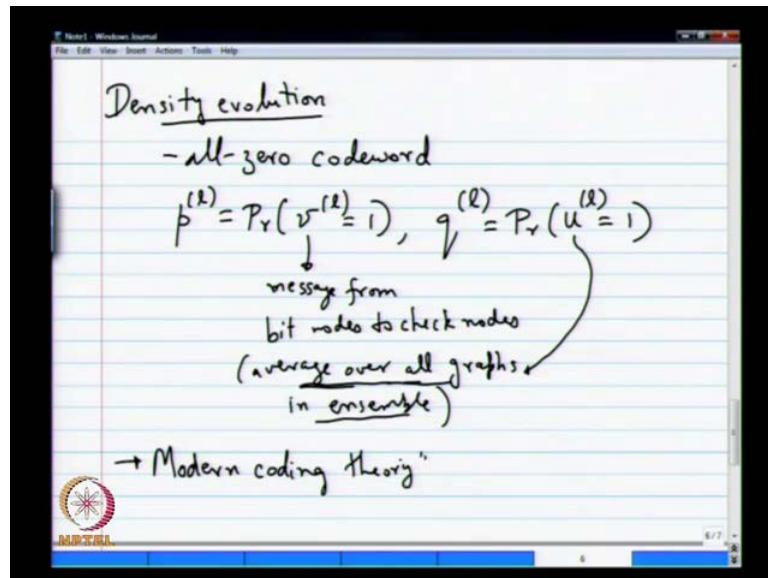 Note1 - Windows Journal
File Edit View Insert Actions Tools Help
Density evolution
- all-zero codeword
p^(l) = Pr(v^(l) = 1), q^(l) = Pr(u^(l) = 1)
message from
bit nodes to check nodes
(average over all graphs
in ensemble)
→ Modern coding theory"
NPTEL
6/7
6